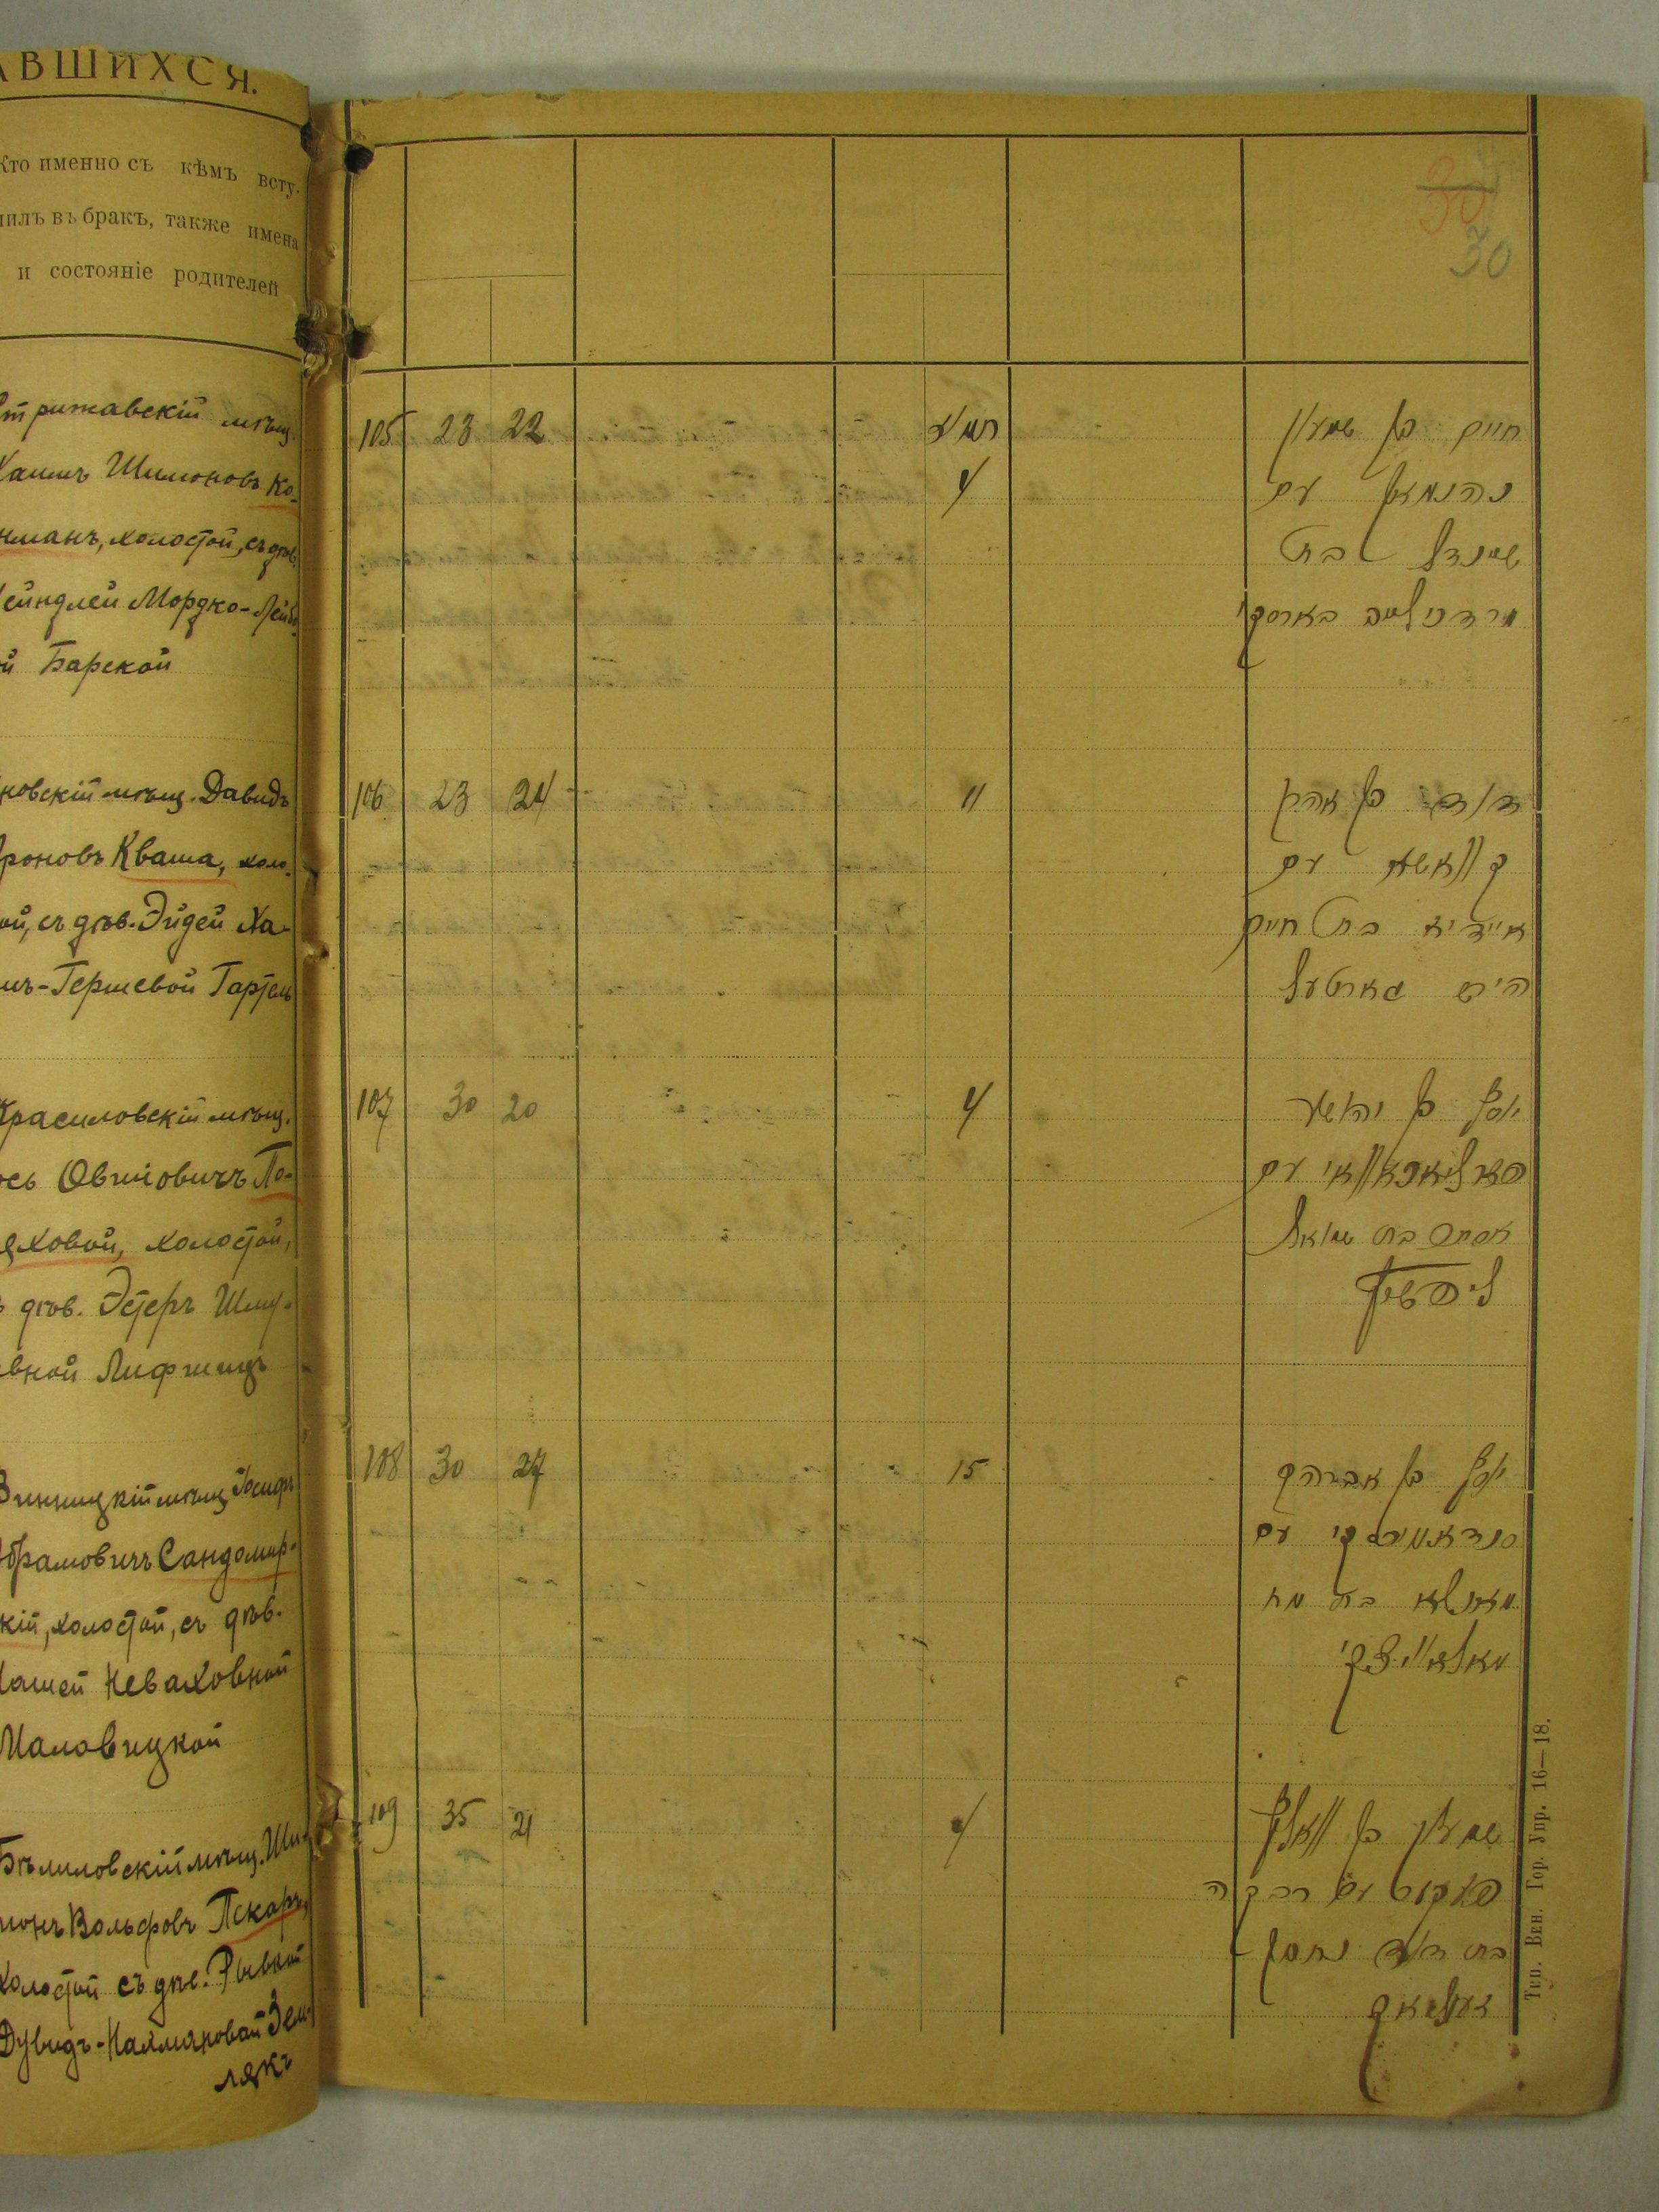 АВШИХСЯ.
Кто именно съ кѣмъ всту-
пилъ въ бракъ, также имена
и состояніе родителей
Стрижавскій мѣщ.
Хаимъ Шимоновъ Ко-
нманъ, холостой, съ дѣв.
Шейндлей Мордко-Лейбо
й Барской
новскій мѣщ. Давидъ
Ароновъ Кваша, холо
ой, съ дѣв. Эйдей Ха-
имъ-Гершевой Гартель
Красиловскій мѣщ.
ось Овшіовичъ По-
яховой, холостой,
ъ дѣв. Эстеръ Шму-
евной Лифшицъ
Винницкій мѣщ. Іосифъ
Абрамовичъ Сандомир-
кій, холостой, съ дѣв.
Машей Неваховной
Маловицкой
Бѣлиловскій мѣщ. Ши-
монъ Вольфовъ Пскаръ,
холостой съ дѣв. Рывкой
Дувидъ-Нахмановой Зем-
лякъ
30
30
105 23 22 4 חיים בן שמעון
עם
שײנדל בת
מרדכי לײב בארסקי
106 23 24 11 דוד בן אהרן
קװאשא עם
אײדיא בת חיים
הירש גארטעל
107 30 20 4 יוסף בן יהושע
פאליאכאװאי עם
אסתר בת שמואל
ליפשיץ
108 30 27 15 יוסף בן אברהם
סנדאמירסקי עם
מאשא בת נח
מאלאװיצקי
109 35 21 שמעון בן װאלף
עם רבקה
בת דוד נחמן
זעמליאק
Тип. Вен. Гор. Упр. 16—18.